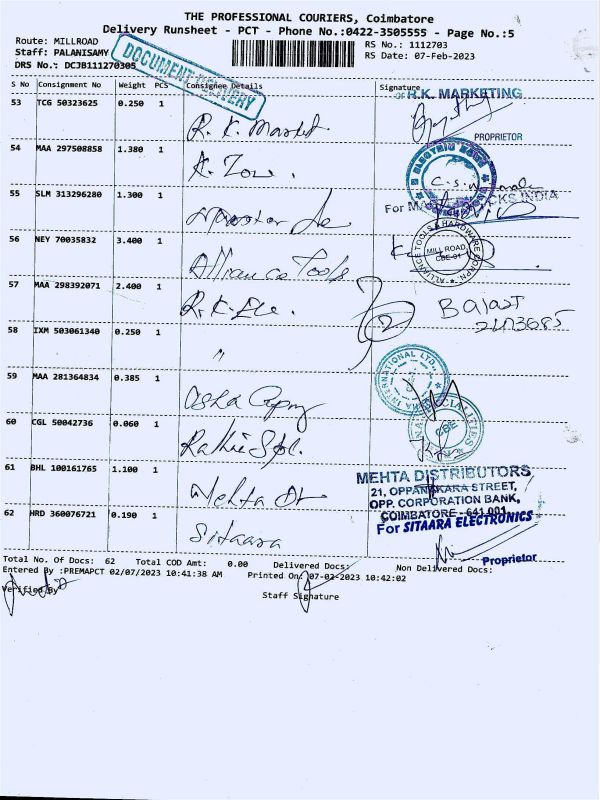 THE PROFESSIONAL COURIERS, Coimbatore
Delivery Runsheet - PCT - Phone No.:0422-3505555 - Page No.:5
Route: MILLROAD
Staff: PALANISAMY
DRS No.: DCJB111270305
DOCUMENT DELIVERY
RS No.: 1112703
RS Date: 07-Feb-2023
S No Consignment No Weight PCS Consignee Details Signature
53 TCG 50323625 0.250 1 R. K. Market
R.K. MARKETING
PROPRIETOR
54 MAA 297508858 1.380 1 A. Zone.
ELECTRIC
55 SLM 313296280 1.300 1
For INDIA
56 NEY 70035832 3.400 1 Alliance Tools
ALLIANCE TOOLS & HARDWARE CORPN.
MILL ROAD
CBE-01
57 MAA 298392071 2.400 1 R.K-Ele.
Balast
58 IXM 503061340 0.250 1 "
59 MAA 281364834 0.385 1 Asha
INTERNATIONAL LTD.,
60 CGL 50042736 0.060 1 Rathi Spl.
CBE
61 BHL 100161765 1.100 1 Mehta Dt
MEHTA DISTRIBUTORS
21, OPPANAKARA STREET,
OPP. CORPORATION BANK,
COIMBATORE - 641 001.
62 HRD 360076721 0.190 1 Sitaara
For SITAARA ELECTRONICS
Proprietor
Total No. Of Docs: 62 Total COD Amt: 0.00 Delivered Docs: Non Delivered Docs:
Entered By :PREMAPCT 02/07/2023 10:41:38 AM Printed On: 07-02-2023 10:42:02
Verified By
Staff Signature